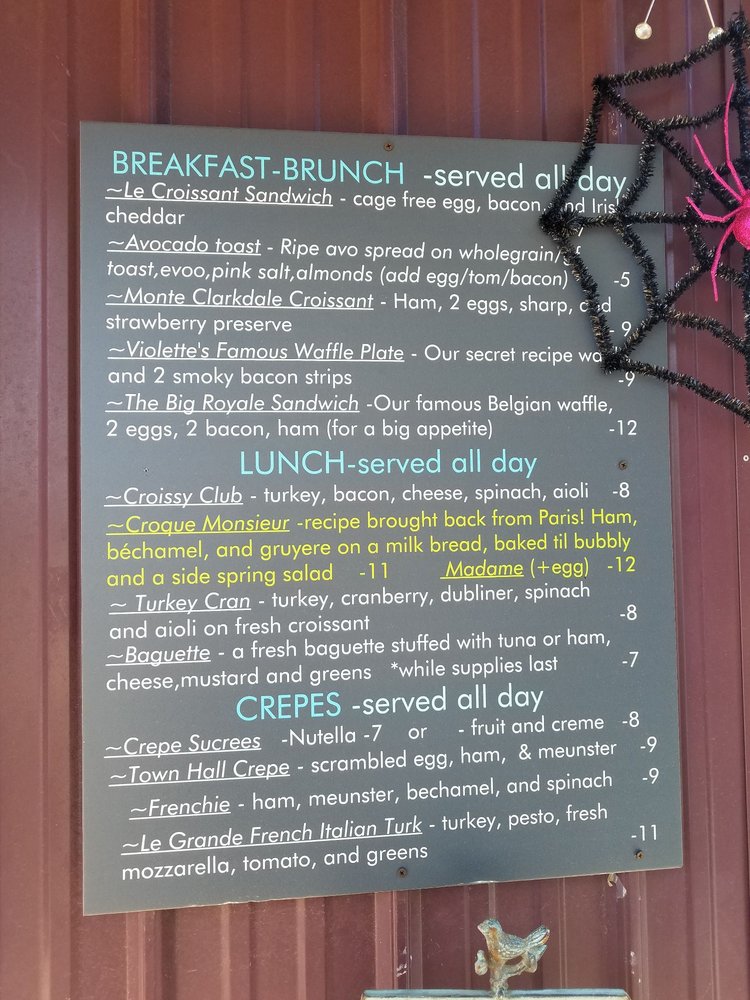 BREAKFAST-BRUNCH -served all day
~Le Croissant Sandwich - cage free egg, bacon, and Irish
cheddar
~Avocado toast - Ripe avo spread on wholegrain/gf
toast,evoo,pink salt,almonds (add egg/tom/bacon) -5
~Monte Clarkdale Croissant - Ham, 2 eggs, sharp, and
strawberry preserve - 9
~Violette's Famous Waffle Plate - Our secret recipe
and 2 smoky bacon strips -9
~The Big Royale Sandwich -Our famous Belgian waffle,
2 eggs, 2 bacon, ham (for a big appetite) -12
LUNCH-served all day
~Croissy Club - turkey, bacon, cheese, spinach, aioli -8
~Croque Monsieur -recipe brought back from Paris! Ham,
béchamel, and gruyere on a milk bread, baked til bubbly
and a side spring salad -11 Madame (+egg) -12
~ Turkey Cran - turkey, cranberry, dubliner, spinach
and aioli on fresh croissant -8
~Baguette - a fresh baguette stuffed with tuna or ham,
cheese,mustard and greens *while supplies last -7
CREPES -served all day
~Crepe Sucrees -Nutella -7 or - fruit and creme -8
~Town Hall Crepe - scrambled egg, ham, & meunster -9
~Frenchie - ham, meunster, bechamel, and spinach -9
~Le Grande French Italian Turk - turkey, pesto, fresh
mozzarella, tomato, and greens -11